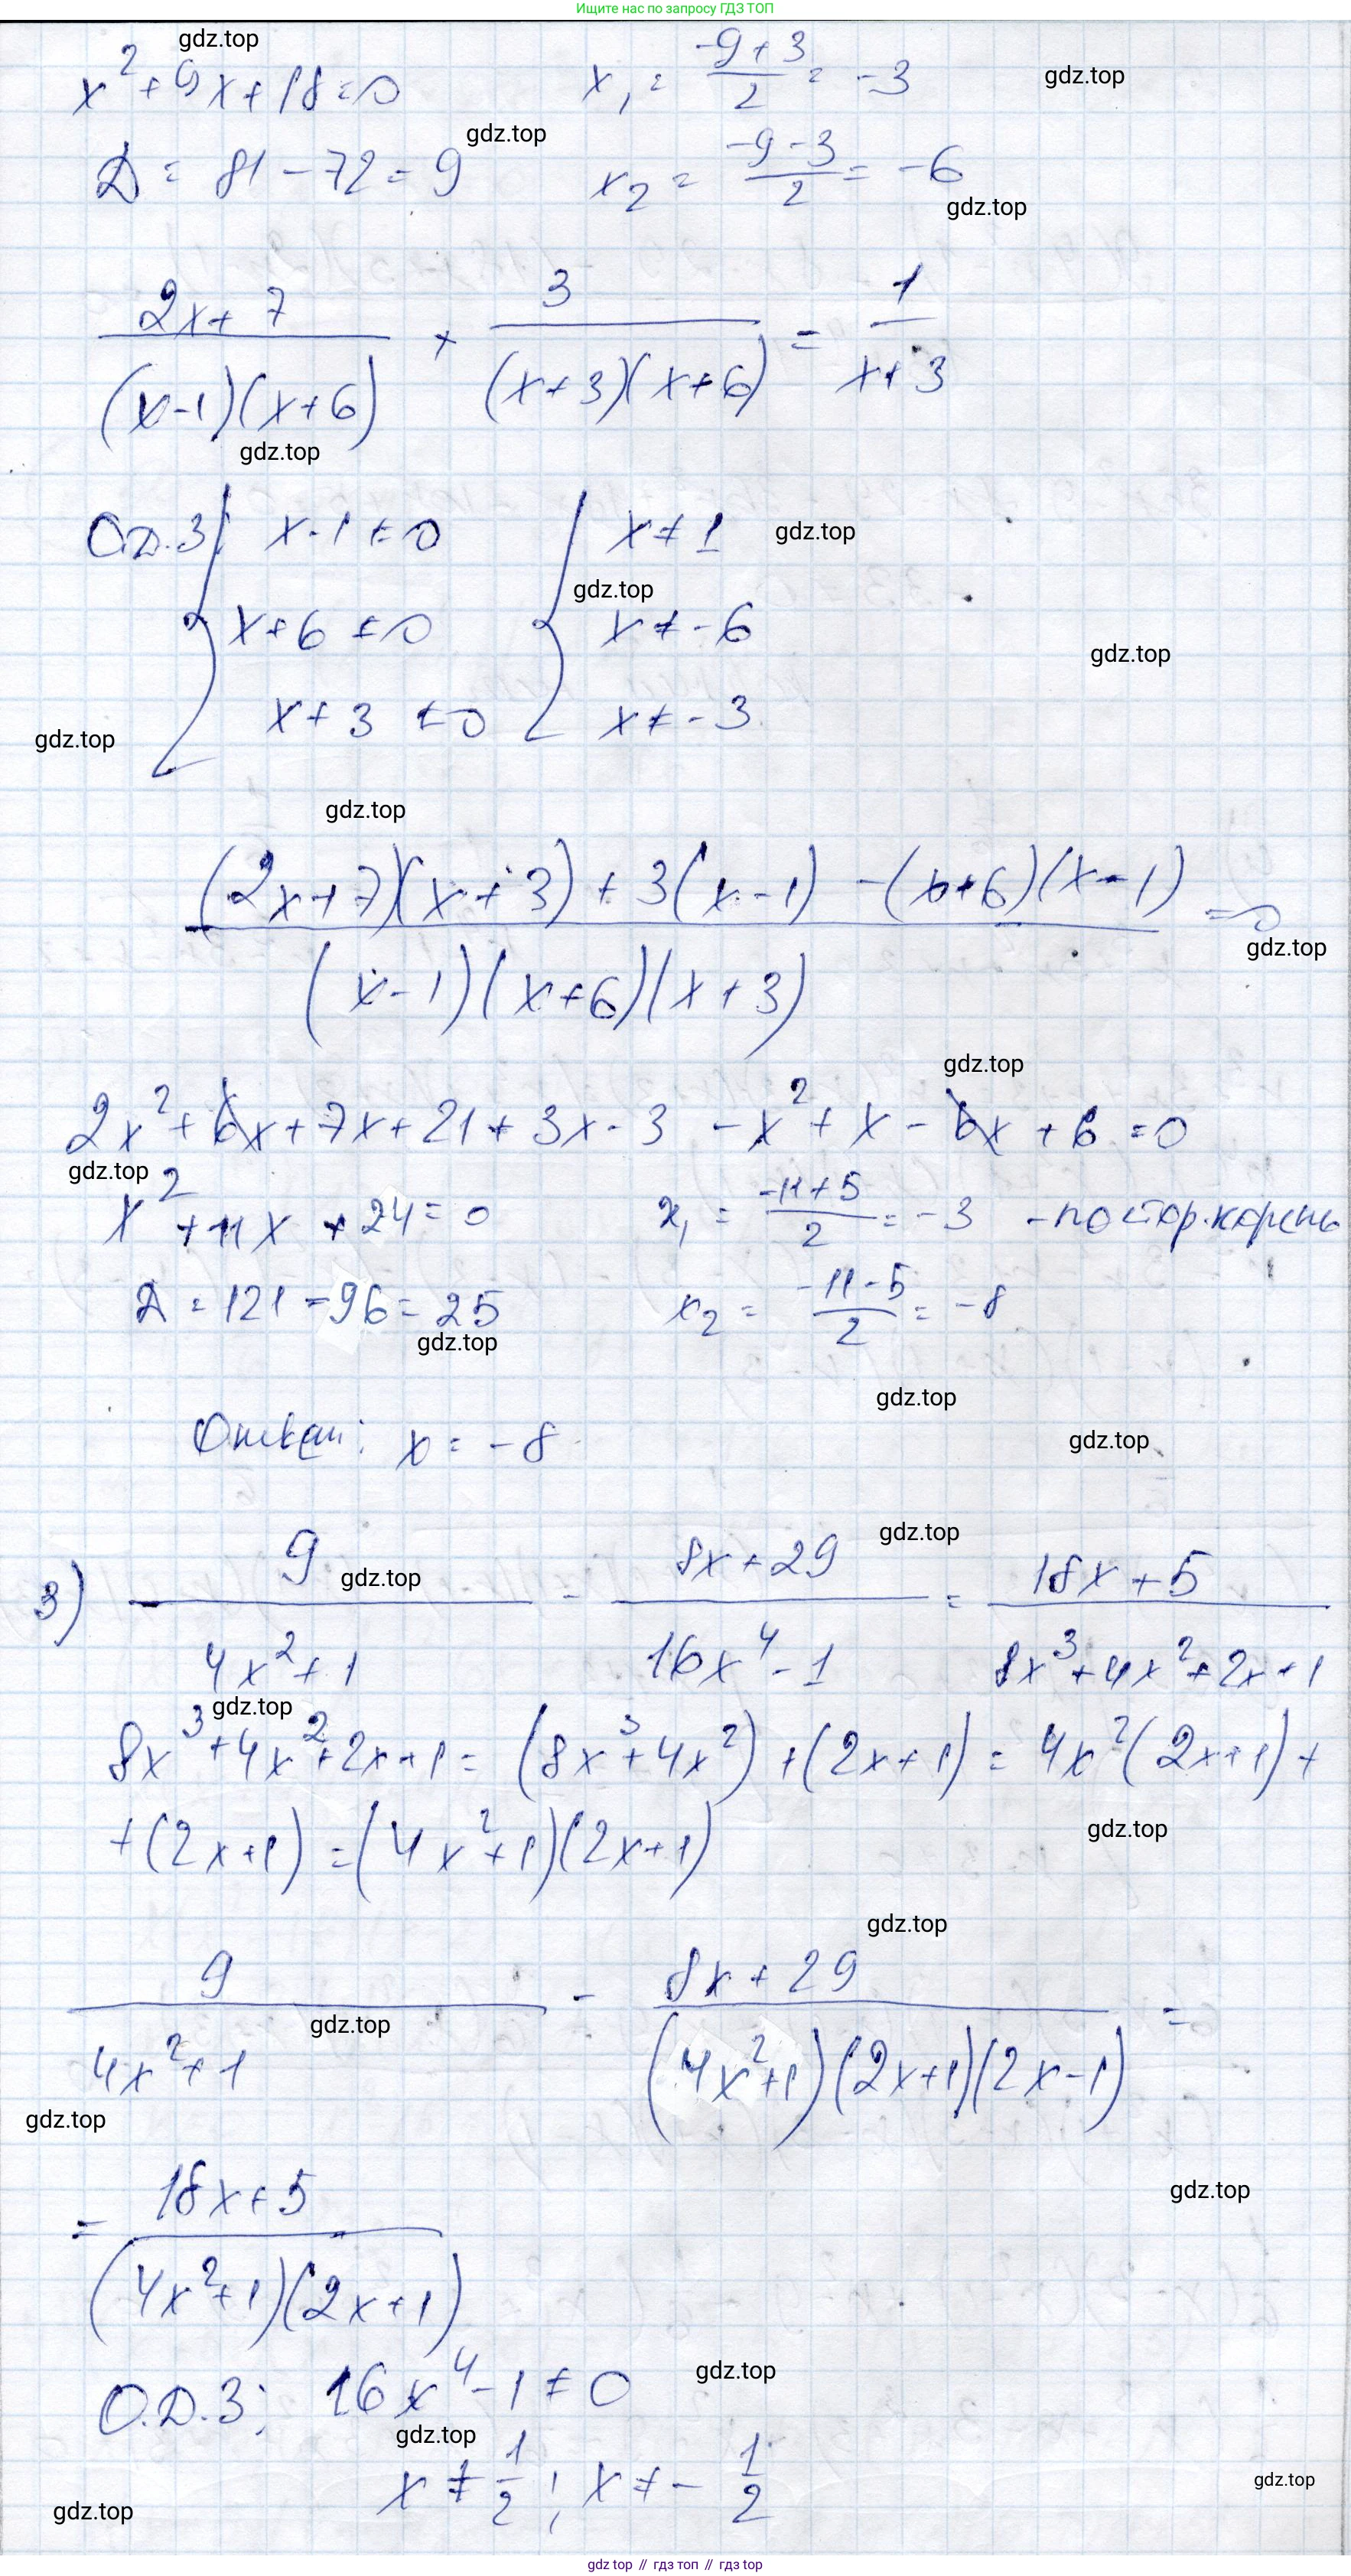 Ищите нас по запросу ГДЗ ТОП
gdz.top
x² + 9x + 18 = 0    x₁ = (-9 + 3)/2 = -3
gdz.top
gdz.top
D = 81 - 72 = 9    x₂ = (-9 - 3)/2 = -6
gdz.top
(2x + 7)/((x-1)(x+6)) + 3/((x+3)(x+6)) = 1/(x+3)
gdz.top
О.Д.З: { x - 1 ≠ 0    { x ≠ 1
gdz.top
gdz.top
x + 6 ≠ 0    x ≠ -6
gdz.top
x + 3 ≠ 0    x ≠ -3
gdz.top
gdz.top
((2x+7)(x+3) + 3(x-1) - (x+6)(x-1))/((x-1)(x+6)(x+3)) = 0
gdz.top
gdz.top
2x² + 6x + 7x + 21 + 3x - 3 - x² + x - 6x + 6 = 0
gdz.top
x² + 11x + 24 = 0    x₁ = (-11 + 5)/2 = -3 - постор. корень
D = 121 - 96 = 25    x₂ = (-11 - 5)/2 = -8
gdz.top
gdz.top
Ответ: x = -8
gdz.top
gdz.top
3) 9/(4x² + 1) - (8x + 29)/(16x⁴ - 1) = (18x + 5)/(8x³ + 4x² + 2x + 1)
gdz.top
gdz.top
8x³ + 4x² + 2x + 1 = (8x³ + 4x²) + (2x + 1) = 4x²(2x + 1) +
+ (2x + 1) = (4x² + 1)(2x + 1)
gdz.top
gdz.top
9/(4x² + 1) - (8x + 29)/((4x² + 1)(2x + 1)(2x - 1)) =
gdz.top
gdz.top
= (18x + 5)/((4x² + 1)(2x + 1))
gdz.top
О.Д.З: 16x⁴ - 1 ≠ 0
gdz.top
gdz.top
x ≠ 1/2; x ≠ - 1/2
gdz.top
gdz.top
gdz top // гдз топ // гдз top